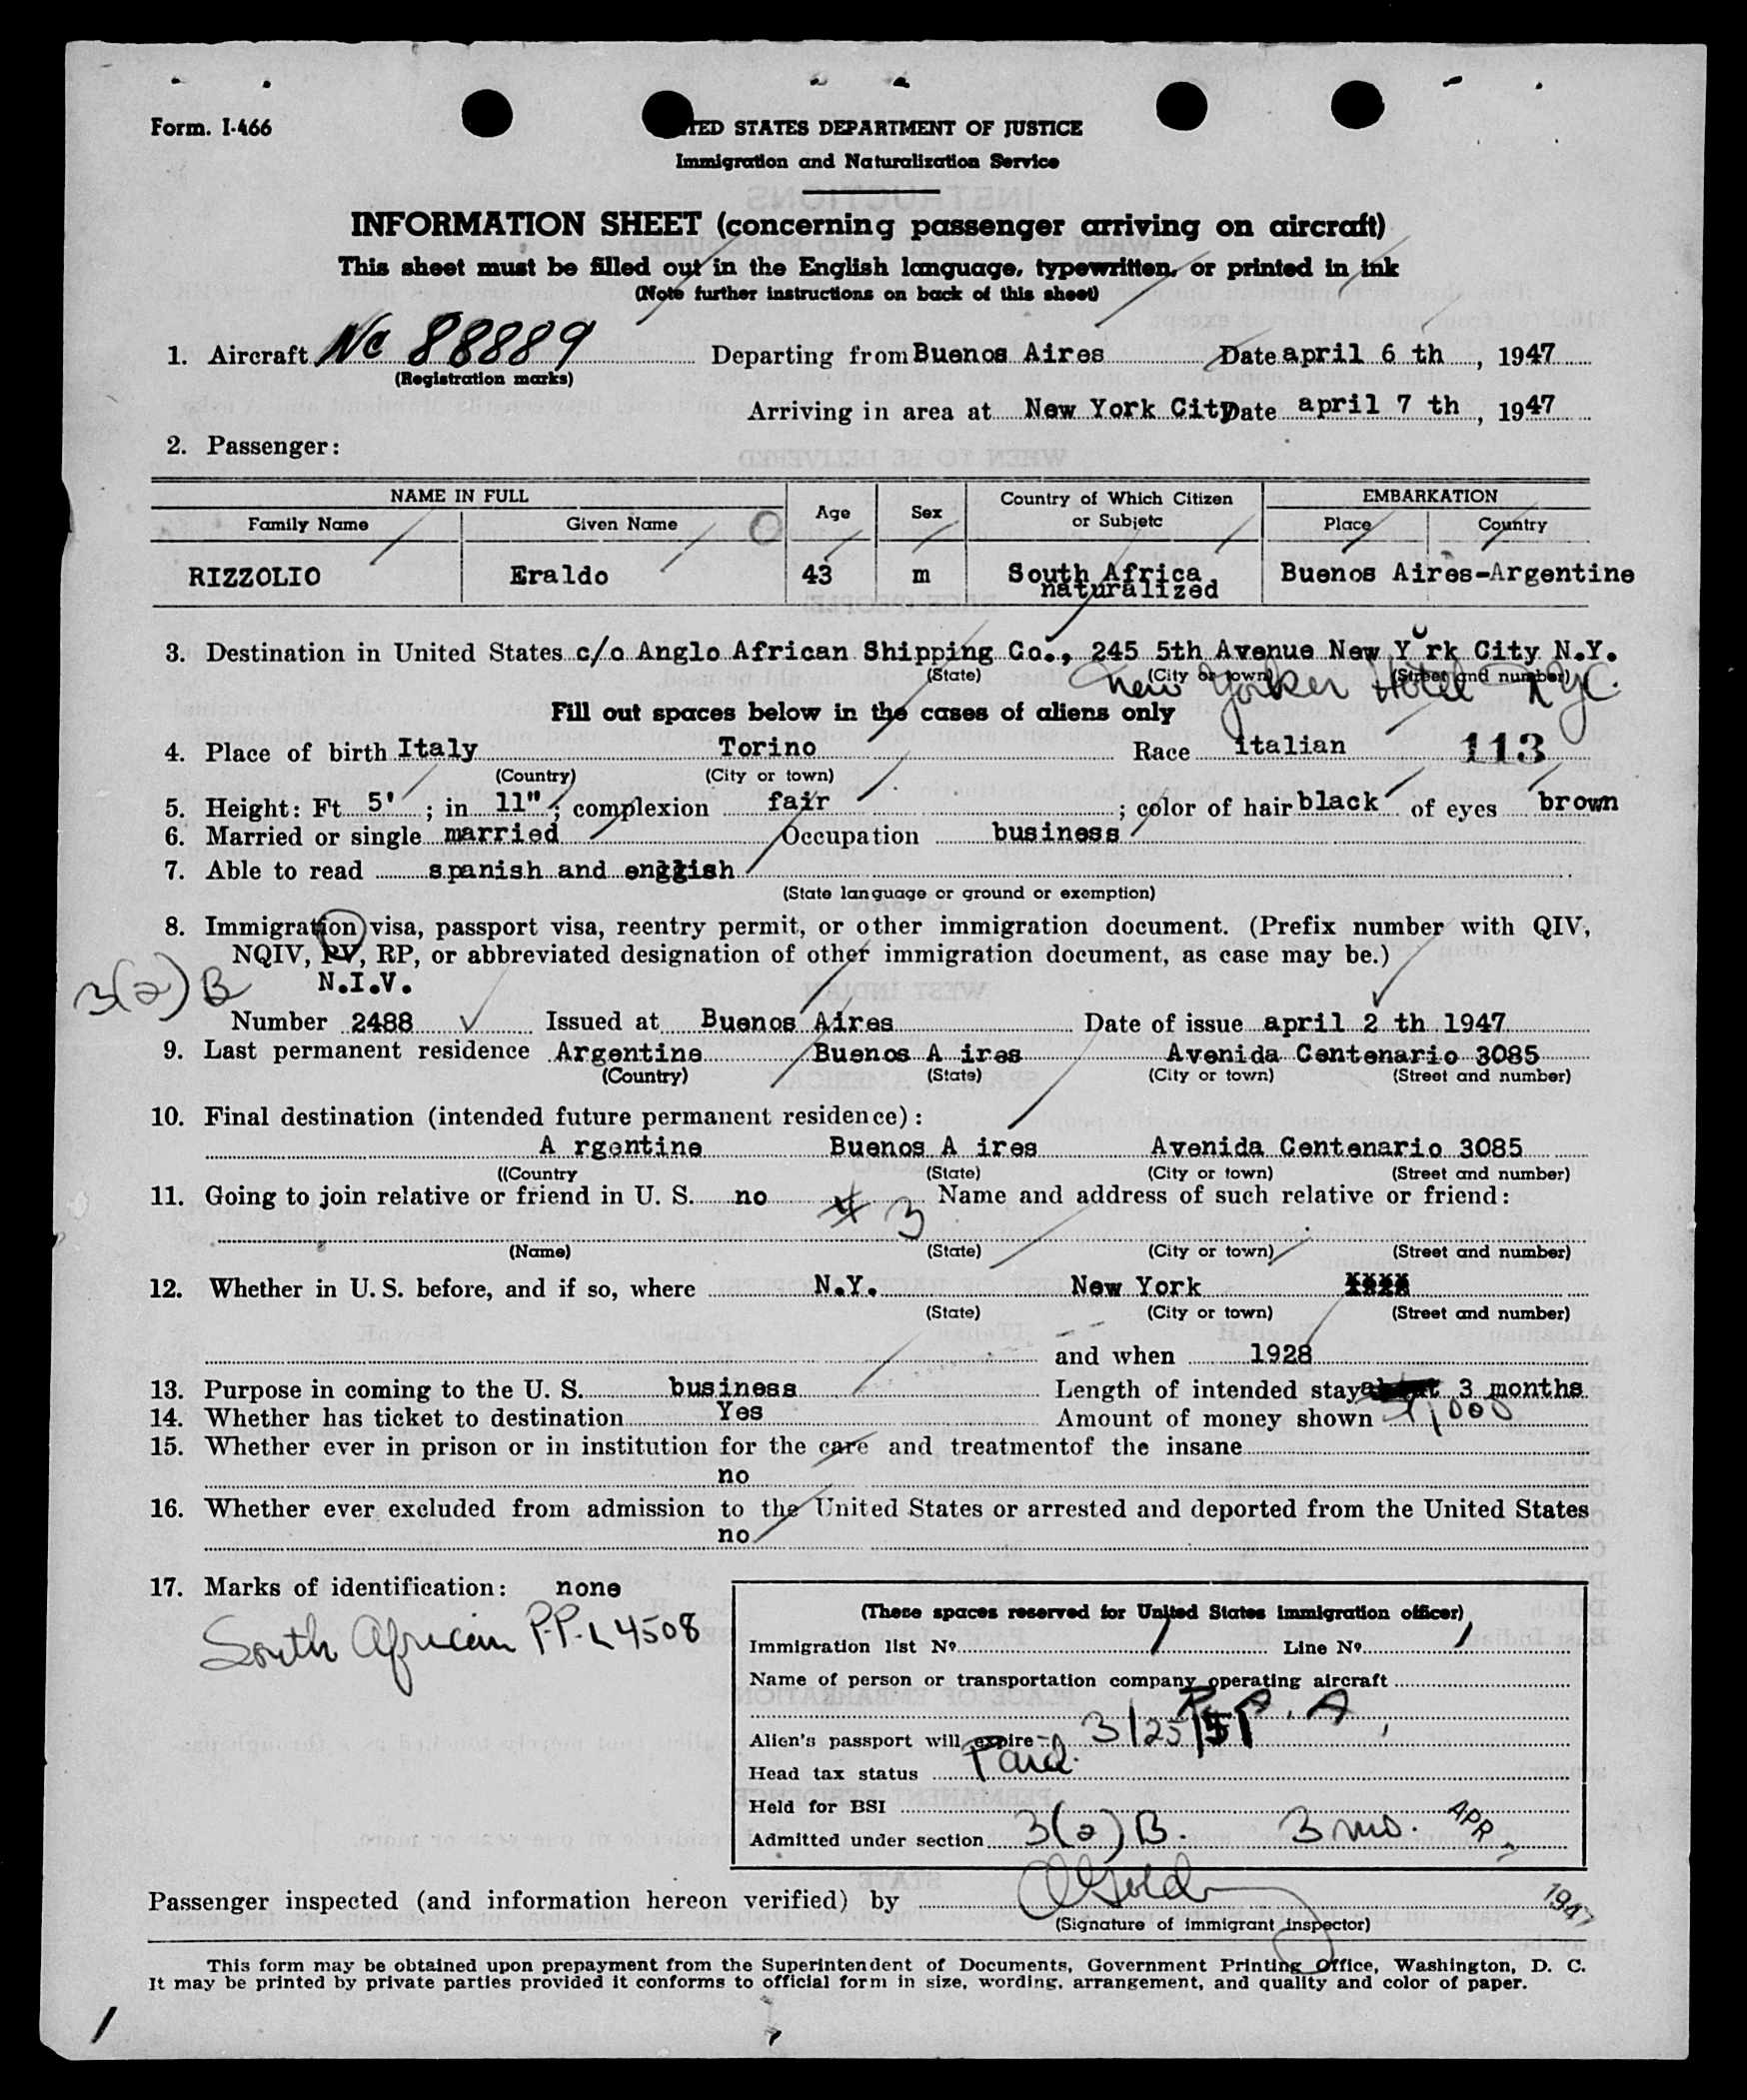 Form. I-466
TED STATES DEPARTMENT OF JUSTICE
Immigration and Naturalization Service
INFORMATION SHEET (concerning passenger arriving on aircraft)
This sheet must be filled out in the English language, typewritten, or printed in ink
(Note further instructions on back of this sheet)
1. Aircraft Nc 88889 Departing from Buenos Aires Date april 6 th , 1947
(Registration marks)
Arriving in area at New York City Date april 7 th , 1947
2. Passenger:
NAME IN FULL Age Sex Country of Which Citizen or Subjetc EMBARKATION
Family Name Given Name Place Country
RIZZOLIO Eraldo 43 m South Africa Buenos Aires-Argentine
naturalized
3. Destination in United States c/o Anglo African Shipping Co., 245 5th Avenue New Y rk City N.Y.
(State) (City or town) (Street and number)
New Yorker Hotel NYC.
Fill out spaces below in the cases of aliens only
4. Place of birth Italy Torino Race italian 113
(Country) (City or town)
5. Height: Ft 5' ; in 11" ; complexion fair ; color of hair black of eyes brown
6. Married or single married Occupation business
7. Able to read spanish and english
(State language or ground or exemption)
8. Immigration visa, passport visa, reentry permit, or other immigration document. (Prefix number with QIV,
NQIV, PV, RP, or abbreviated designation of other immigration document, as case may be.)
3(2) B N.I.V.
Number 2488 Issued at Buenos Aires Date of issue april 2 th 1947
9. Last permanent residence Argentine Buenos A ires Avenida Centenario 3085
(Country) (State) (City or town) (Street and number)
10. Final destination (intended future permanent residence):
A rgentine Buenos A ires Avenida Centenario 3085
((Country (State) (City or town) (Street and number)
11. Going to join relative or friend in U. S. no # 3 Name and address of such relative or friend:
(Name) (State) (City or town) (Street and number)
12. Whether in U. S. before, and if so, where N.Y. New York
(State) (City or town) (Street and number)
and when 1928
13. Purpose in coming to the U. S. business Length of intended stay 3 months
14. Whether has ticket to destination Yes Amount of money shown 1,000
15. Whether ever in prison or in institution for the care and treatmentof the insane
no
16. Whether ever excluded from admission to the United States or arrested and deported from the United States
no
17. Marks of identification: none
South African P.P. L 4508
(These spaces reserved for United States immigration officer)
Immigration list Nº 1 Line Nº 1
Name of person or transportation company operating aircraft
P. A. A.
Alien's passport will expire 3/25/51
Head tax status Paid.
Held for BSI
Admitted under section 3(2) B. 3 mo. APR 7 1947
Passenger inspected (and information hereon verified) by
(Signature of immigrant inspector)
This form may be obtained upon prepayment from the Superintendent of Documents, Government Printing Office, Washington, D. C.
It may be printed by private parties provided it conforms to official form in size, wording, arrangement, and quality and color of paper.
/